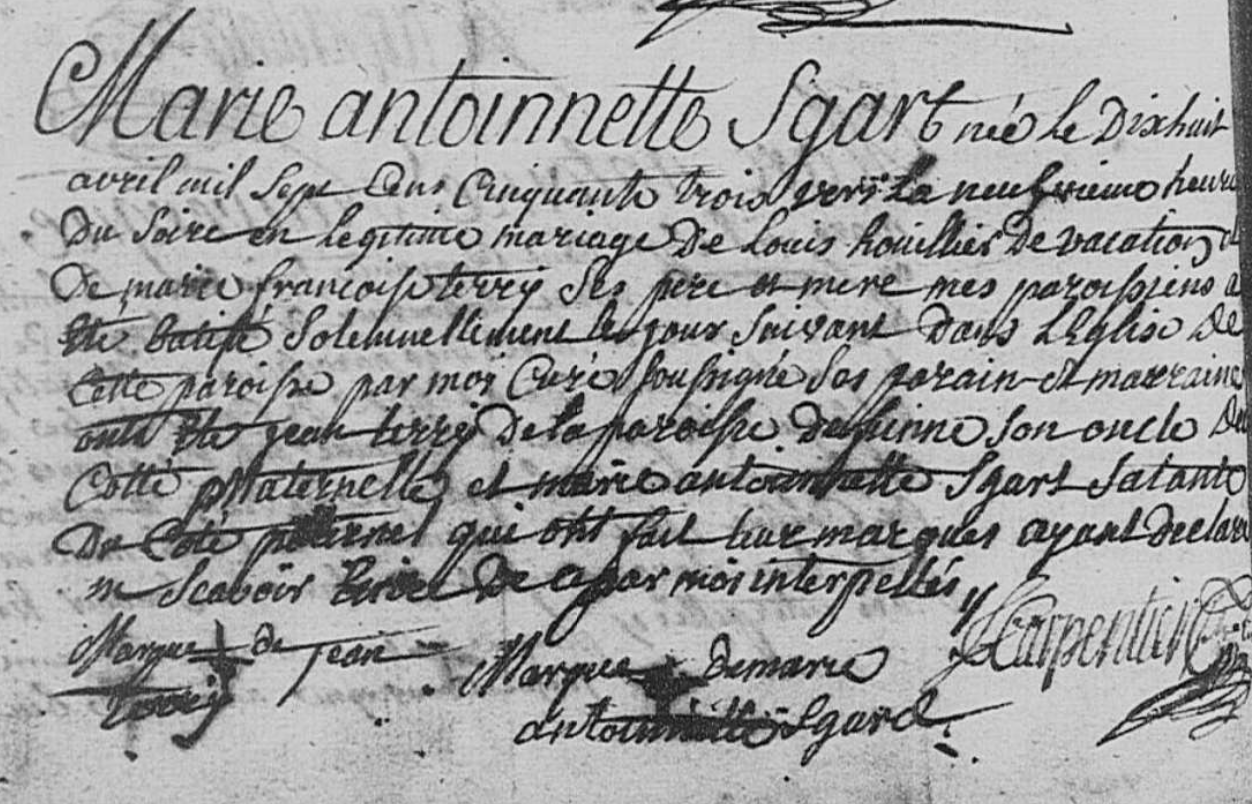 Marie antoinnette Sgart née le Dixhuit
avril mil Sept Cens Cinquante trois vers la neufvieme heure
Du Soire en legitime mariage De Louis houillier De vacation et
De marie francoise terry Ses pere et mere mes paroissiens a
été batisé Solemnellement le jour Suivant Dans L'Eglise De
Cette paroisse par moi Curé Soussigné Ses parain et marraine
onts été jean terry De la paroisse Son oncle Du
Cotté Maternelle et marie antoinnette Sgart Satante
De Coté paternel qui ont fait leur marques ayant Declaré
ne Scavoir Ecrire De ce par moi interpellés
Marque de jean
terry
Marque De marie
antoinnette Sgard
Carpentier